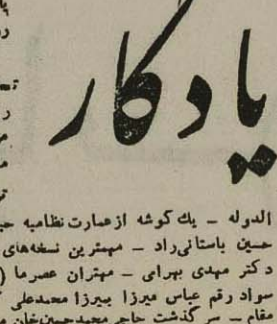 یادگار
الدوله – یك گوشه از عمارت نظامیه
حسین باستانی‌راد – مهمترین نسخه‌های
دکتر مهدی بهرامی – مهتران عصر ما (
سواد رقم عباس میرزا بمیرزا محمدعلی
مقام – سرگذشت حاجی محمدحسین‌خان